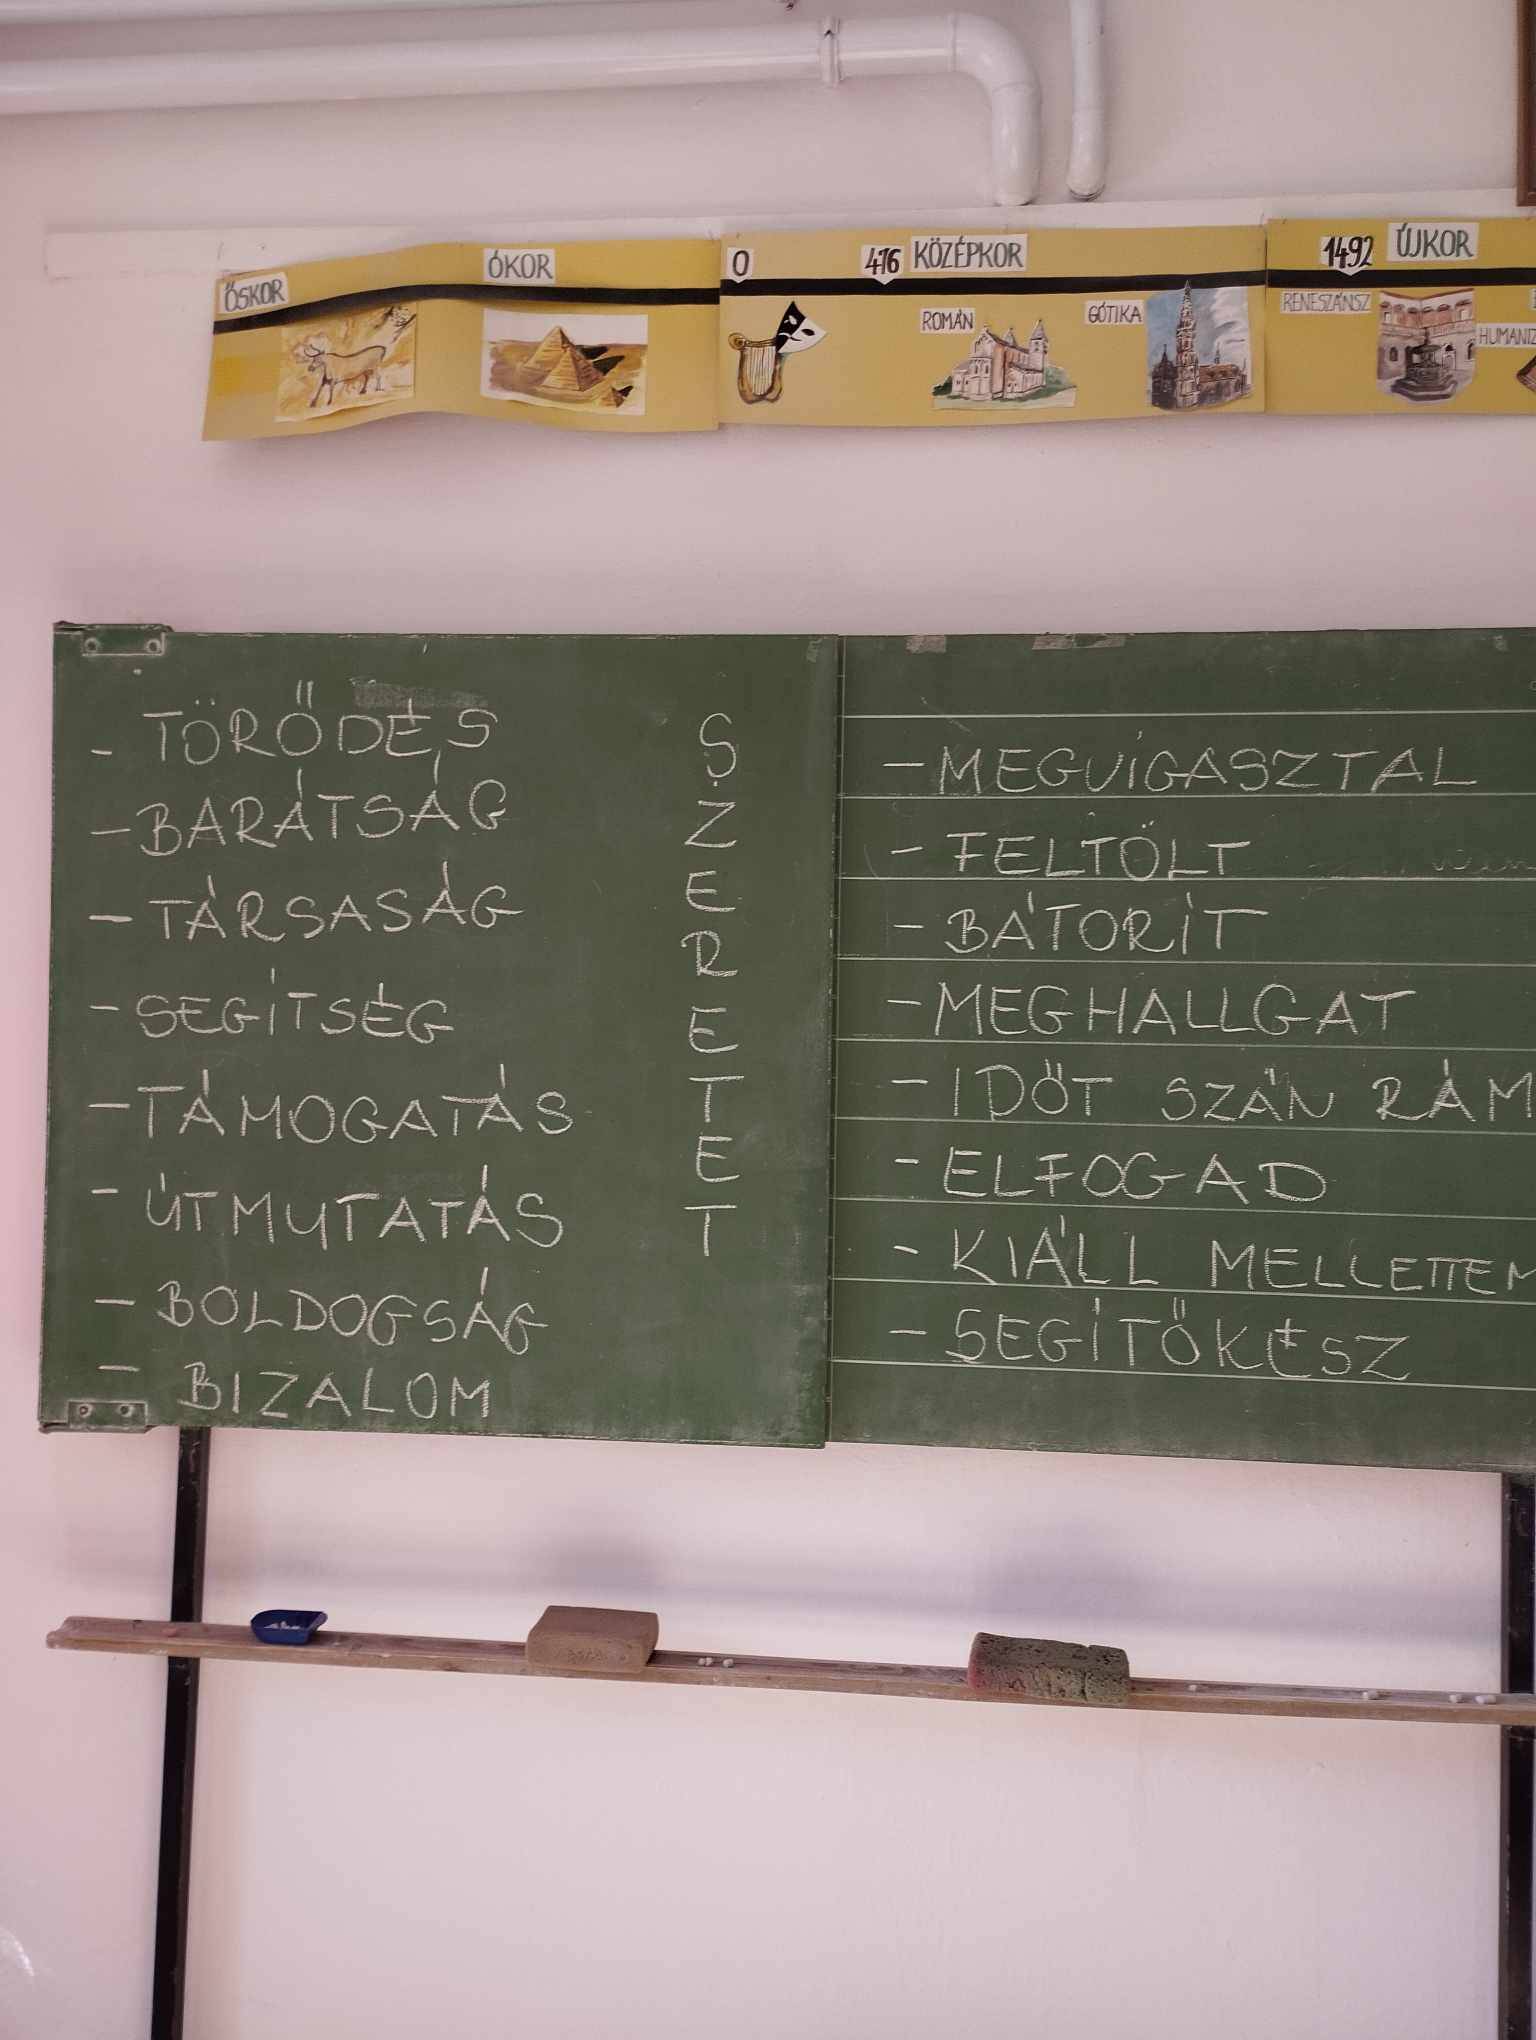 ŐSKOR
ÓKOR
0
476 KÖZÉPKOR
ROMÁN
GÓTIKA
1492 ÚJKOR
RENESZÁNSZ
HUMANIZ
- TÖRŐDÉS
- BARÁTSÁG
- TÁRSASÁG
- SEGÍTSÉG
- TÁMOGATÁS
- ÚTMUTATÁS
- BOLDOGSÁG
- BIZALOM
S
Z
E
R
E
T
E
T
- MEGVÍGASZTAL
- FELTÖLT
- BÁTORÍT
- MEGHALLGAT
- IDŐT SZÁN RÁM
- ELFOGAD
- KIÁLL MELLETTEM
- SEGÍTŐKÉSZ